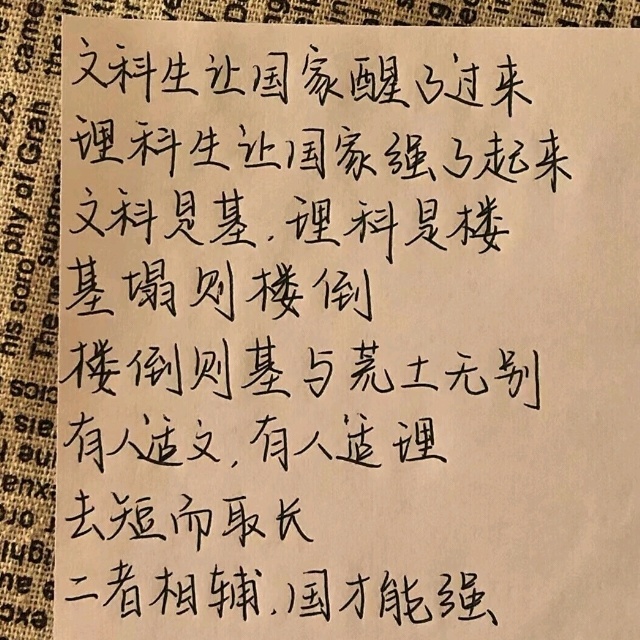 文科生让国家醒了过来
理科生让国家强了起来
文科是基,理科是楼
基塌则楼倒
楼倒则基与荒土无别
有人适文,有人适理
去短而取长
二者相辅,国才能强